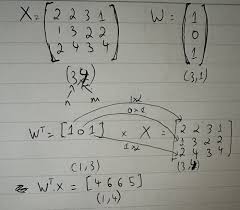 X = (2 2 3 1
1 3 2 2
2 4 3 4) W = (1
0
1)
(3,4) (3,1)
n m
1x2
0x1
Wᵀ = [1 0 1] x X = [2 2 3 1
1 3 2 2
2 4 3 4]
1x2
(1,3) (3,4)
Wᵀ.X = [4 6 6 5]
(1,4)